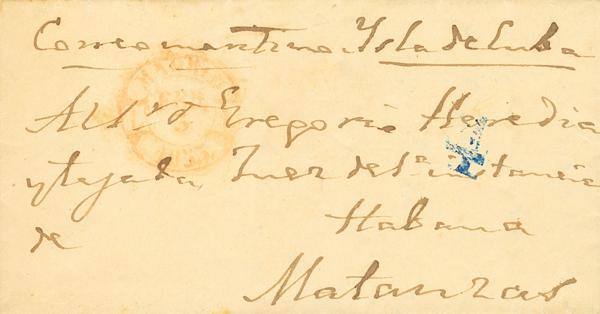 Correo maritimo Ysla de Cuba
Al Sr Dⁿ Gregorio Heredia
y Tejada, Juez de 1ª instancia
de Habana
Matanzas